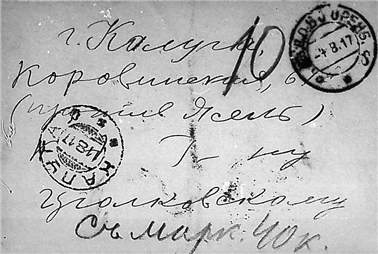 г. Калуга,
10
Коровинская, 61
(против Яслей)
Г-ну
Циолковскому
Съ марк. 40 к.
-4 8.17
КАЛУГА